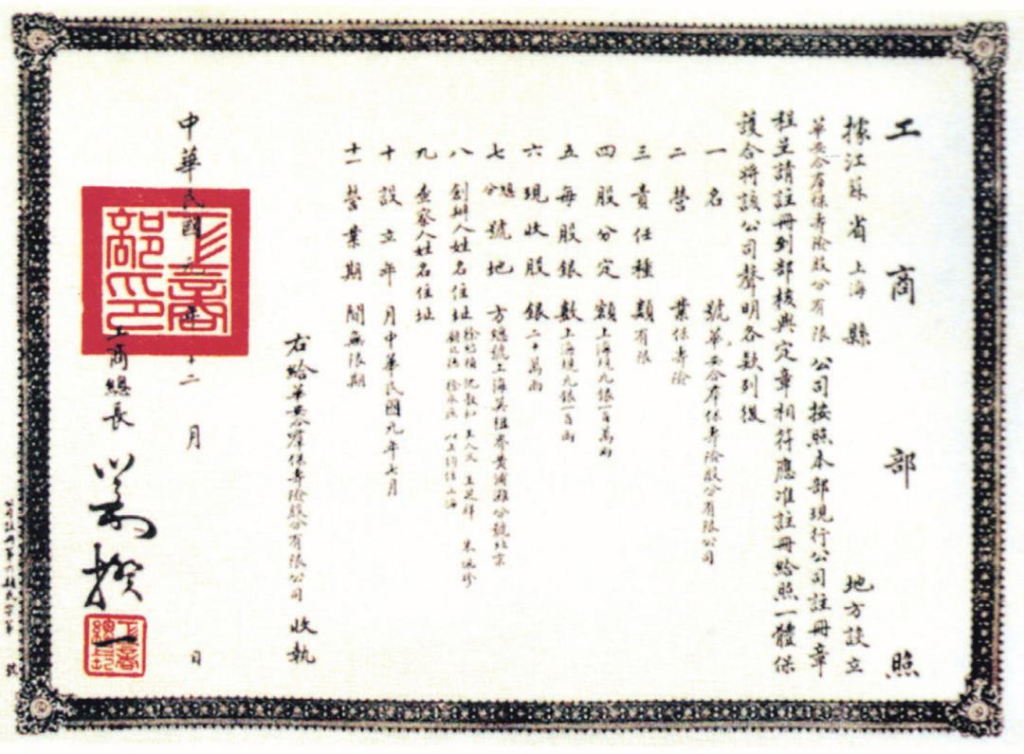 工商部照
據江蘇省上海縣 地方設立
華安合群保壽險股分有限公司按照本部現行公司註冊章
程呈請註冊到部核與定章相符應准註冊給照一體保
護合將該公司聲明各款列後
一 名 號 華安合群保壽險股分有限公司
二 營 業 保壽險
三 責任種類 有限
四 股分定額 上海規元銀一百萬兩
五 每股銀數 上海規元銀一百兩
六 現收股銀 二十萬兩
七 總分號地方 總號上海英租界黃浦灘分號北京
八 創辦人姓名住址 徐紹楨 沈敦和 王人文 王芝祥 朱佩珍
以上均住上海
九 查察人姓名住址
十 設立年月 中華民國元年七月
十一 營業期間 無限期
右給華安合群保壽險股分有限公司 收執
中華民國元年十二月 日
工商總長 劉揆一
工商部印